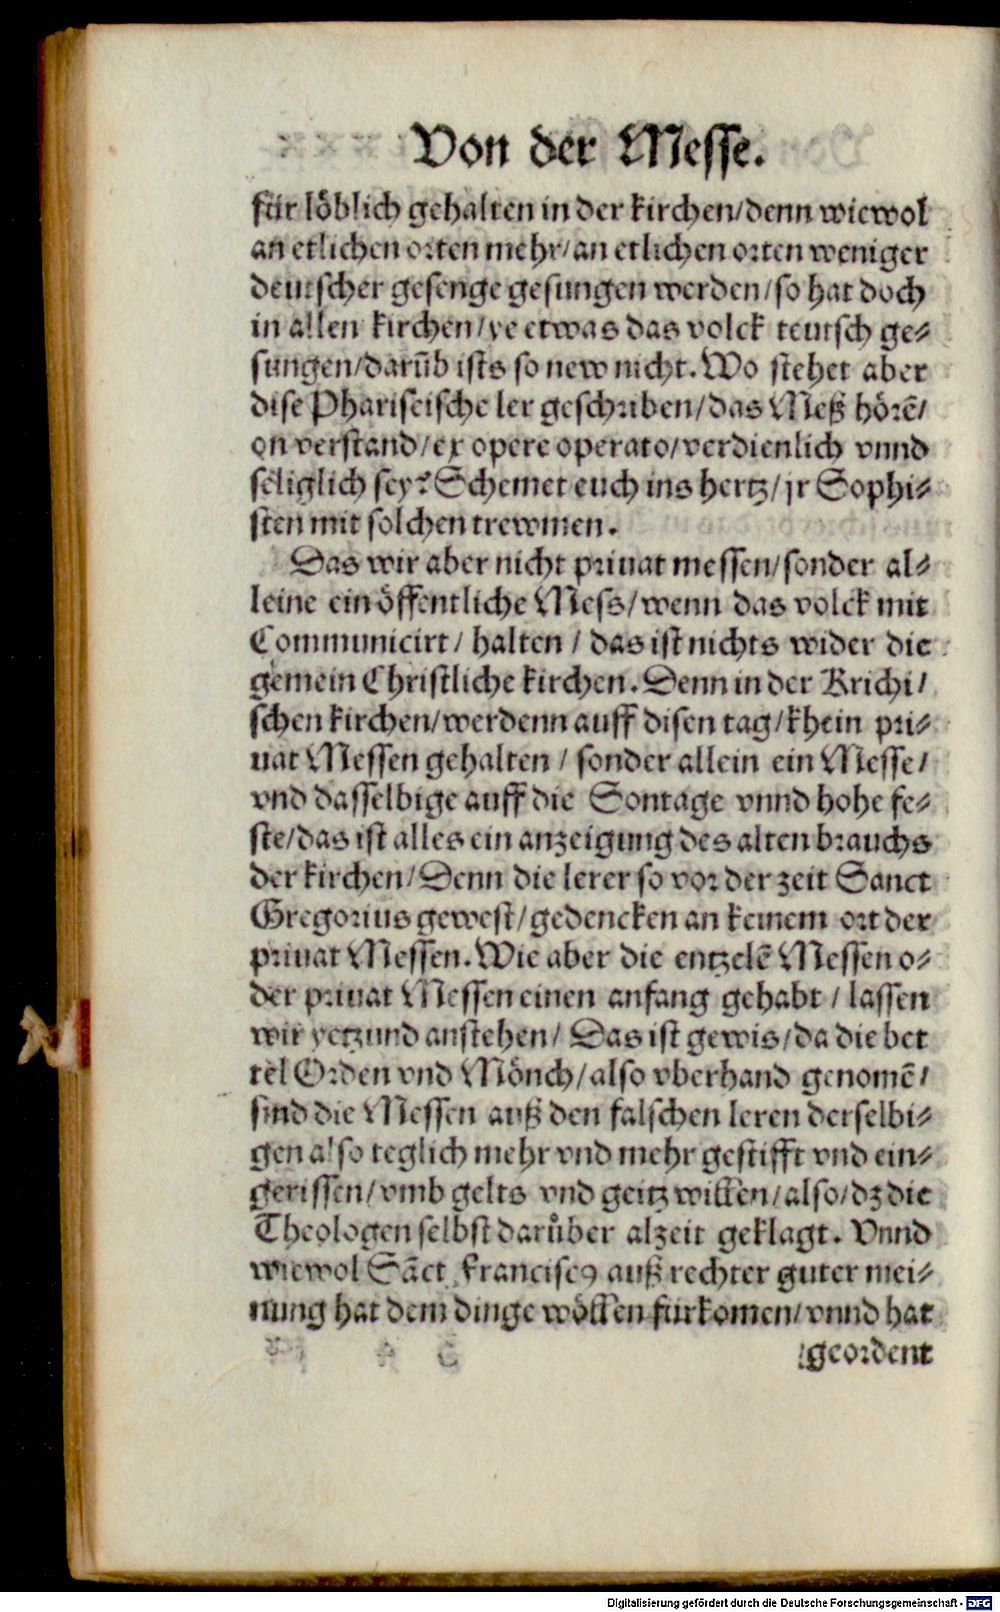 Von der Messe.
für löblich gehalten in der kirchen/denn wiewol
an etlichen orten mehr/an etlichen orten weniger
deutscher gesenge gesungen werden/so hat doch
in allen kirchen/ye etwas das volck teutsch ge⸗
sungen/darūb ists so new nicht. Wo stehet aber
dise Phariseische ler geschriben/das Meß hörē/
on verstand/ex opere operato/verdienlich vnnd
seliglich sey? Schemet euch ins hertz/jr Sophi⸗
sten mit solchen trewmen.
Das wir aber nicht priuat messen/sonder al⸗
leine ein öffentliche Mess/wenn das volck mit
Communicirt/ halten / das ist nichts wider die
gemein Christliche kirchen. Denn in der Krichi/
schen kirchen/werdenn auff disen tag/khein pri⸗
uat Messen gehalten / sonder allein ein Messe/
vnd dasselbige auff die Sontage vnnd hohe fe⸗
ste/das ist alles ein anzeigung des alten brauchs
der kirchen/Denn die lerer so vor der zeit Sanct
Gregorius gewest/gedencken an keinem ort der
priuat Messen. Wie aber die entzelē Messen o⸗
der priuat Messen einen anfang gehabt / lassen
wir yetzund anstehen/ Das ist gewis/da die bet
tel Orden vnd Mönch/also vberhand genomē/
sind die Messen auß den falschen leren derselbi⸗
gen also teglich mehr vnd mehr gestifft vnd ein⸗
gerissen/vmb gelts vnd geitz willen/also/dz die
Theologen selbst darůber alzeit geklagt. Vnnd
wiewol Sāct Franciscꝰ auß rechter guter mei⸗
nung hat dem dinge wöllen fürkomen/vnnd hat
geordent
Digitalisierung gefördert durch die Deutsche Forschungsgemeinschaft - DFG